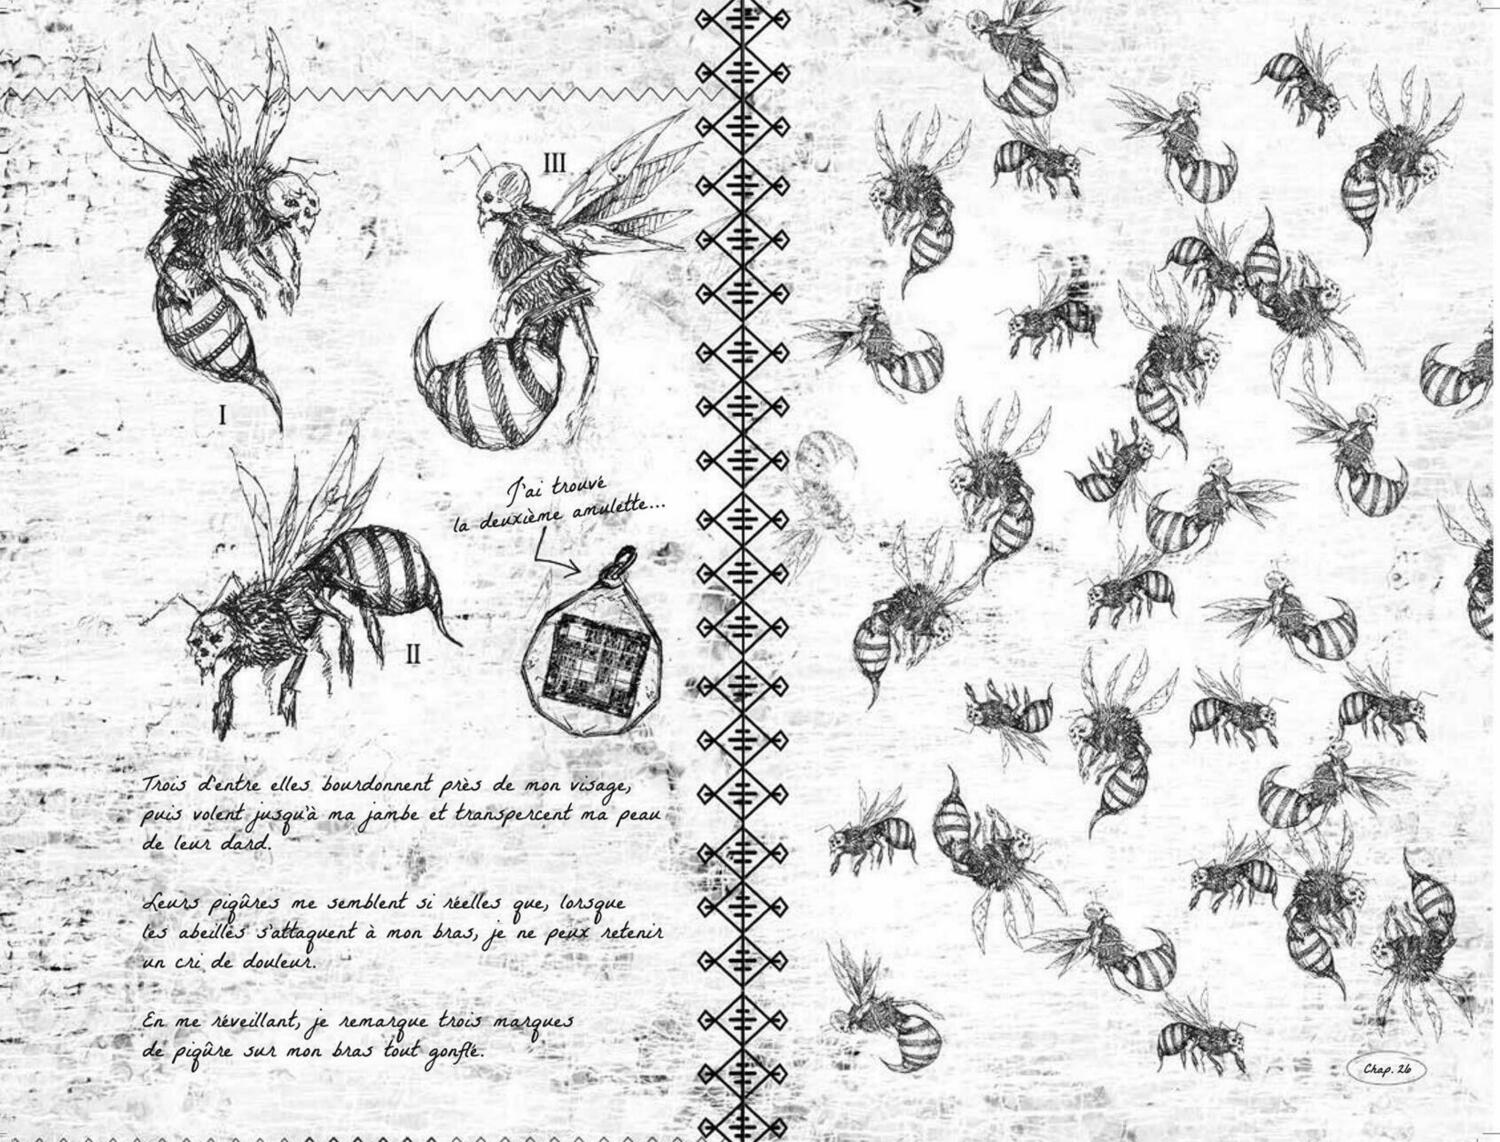 III
I
J'ai trouvé
la deuxième amulette...
II
Trois d'entre elles bourdonnent près de mon visage,
puis volent jusqu'à ma jambe et transpercent ma peau
de leur dard.
Leurs piqûres me semblent si réelles que, lorsque
les abeilles s'attaquent à mon bras, je ne peux retenir
un cri de douleur.
En me réveillant, je remarque trois marques
de piqûre sur mon bras tout gonflé.
Chap. 26